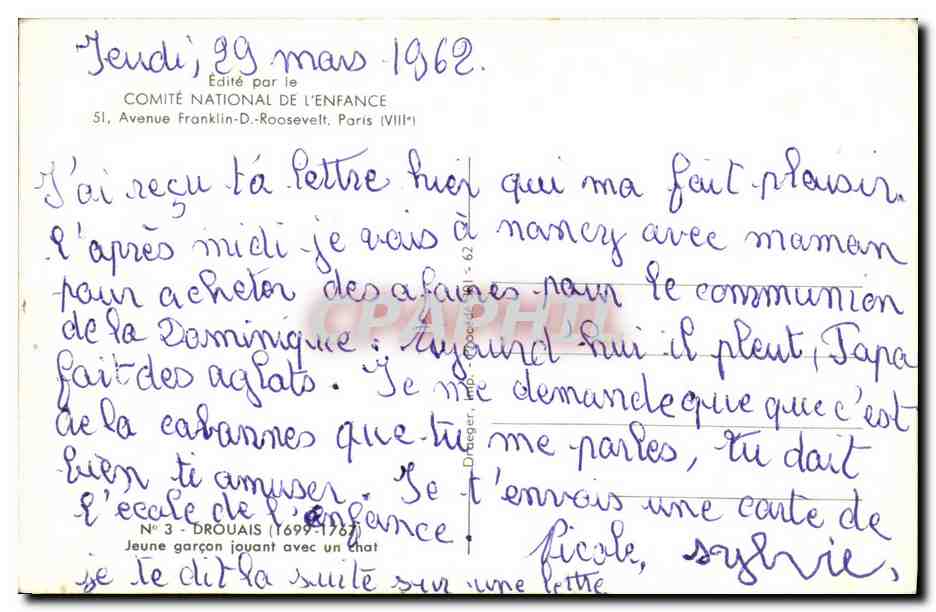 Jeudi, 29 mars 1962.
Édité par le
COMITÉ NATIONAL DE L'ENFANCE
51, Avenue Franklin-D.-Roosevelt, Paris (VIIIe)
J'ai reçu ta lettre hier qui ma fait plaisir.
l'après midi je vais à nancy avec maman
pour acheter des afaires pour le communion
de la Dominique. Aujourd'hui il pleut, Papa
fait des aglats. Je me demande que que c'est
de la cabannes que tu me parles, tu dait
bien ti amuser. Je t'envais une carte de
l'école de l'enfance.
Sylvie,
je te dit la suite sur une lettre
N° 3 - DROUAIS (1699-1767)
Jeune garçon jouant avec un chat
Draeger, Imp. - 62
CPAPHIL